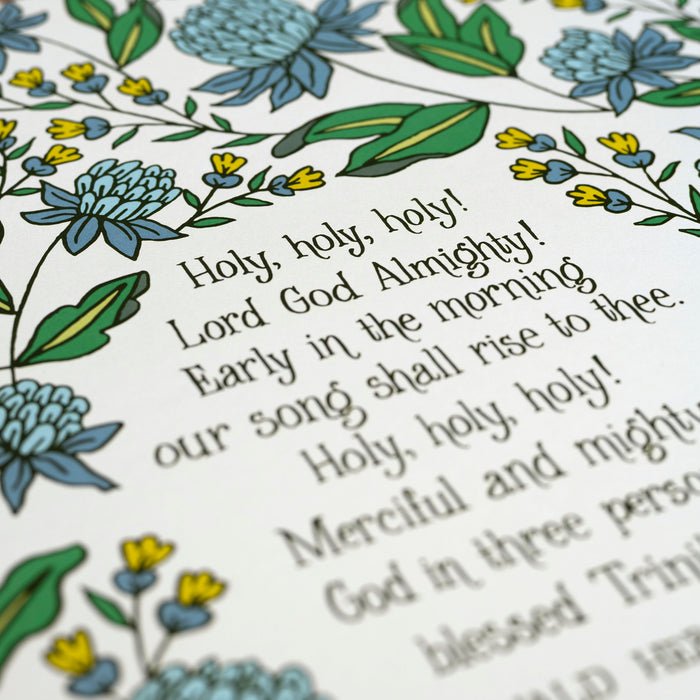 Holy, holy, holy!
Lord God Almighty!
Early in the morning
our song shall rise to thee.
Holy, holy, holy!
Merciful and mighty
God in three perso
blessed Trini